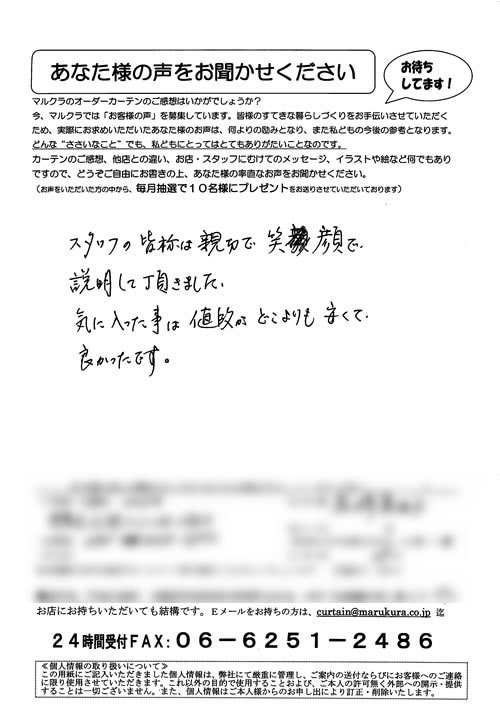 あなた様の声をお聞かせください
お待ち
してます!
マルクラのオーダーカーテンのご感想はいかがでしょうか?
今、マルクラでは「お客様の声」を募集しています。皆様のすてきな暮らしづくりをお手伝いさせていただく
ため、実際にお求めいただいたあなた様のお声は、何よりの励みとなり、また私どもの今後の参考となります。
どんな“ささいなこと”でも、私どもにとってはとてもありがたいことなのです。
カーテンのご感想、他店との違い、お店・スタッフにむけてのメッセージ、イラストや絵など何でもあり
ですので、どうぞご自由にお書きの上、あなた様の率直なお声をお聞かせください。
(お声をいただいた方の中から、毎月抽選で10名様にプレゼントをお送りさせていただいております)
スタッフの皆称は親切で 笑顔で
説明して頂きました。
気に入った事は値段が どこよりも 安くて
良かったです。
お店にお持ちいただいても結構です。Eメールをお持ちの方は、curtain@marukura.co.jp 迄
24時間受付FAX:06-6251-2486
≪個人情報の取り扱いについて≫
この用紙にご記入いただきました個人情報は、弊社にて厳重に管理し、ご案内の送付ならびにお客様へのご連絡
に限り使用させていただきます。これ以外の目的で使用することおよび、ご本人の許可無く外部への開示・提供
することは一切ございません。また、個人情報はご本人様からのお申し出により訂正・削除いたします。